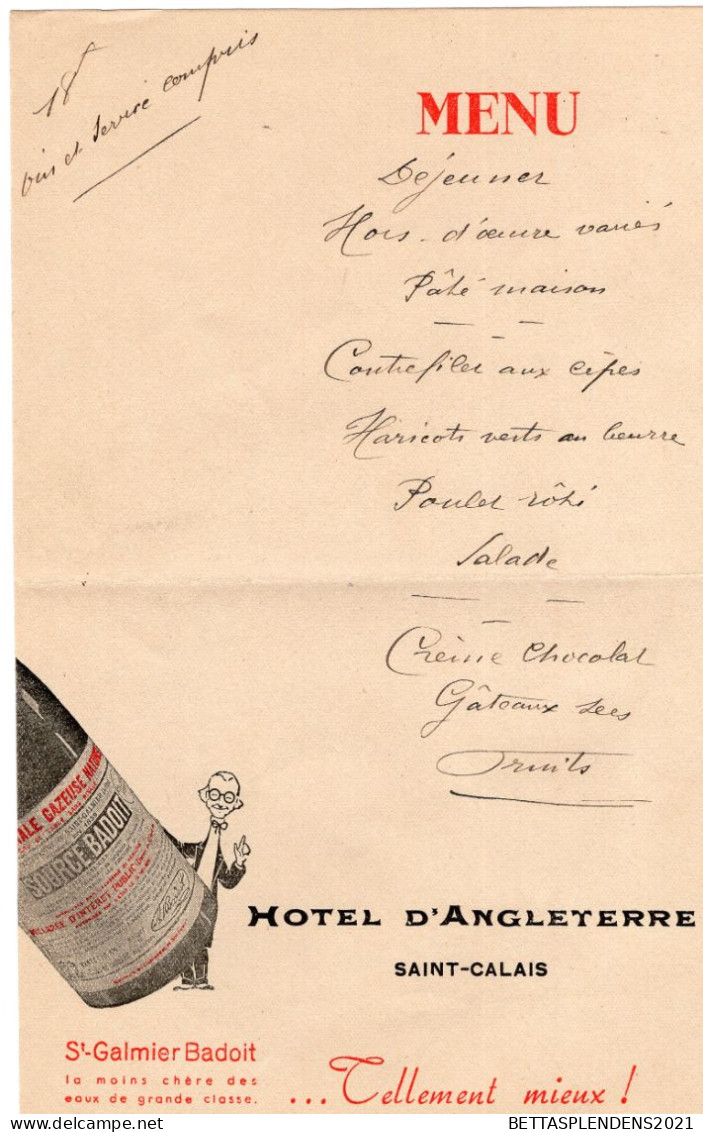 18f
vin et service compris
MENU
Déjeuner
Hors-d'œuvre variés
Pâté maison
Contrefilet aux cèpes
Haricots verts au beurre
Poulet rôti
Salade
Crème Chocolat
Gâteaux secs
Fruits
ALE GAZEUSE NATURE
SAINT-GALMIER
SOURCE BADOIT
D'INTERET PUBLIC
HOTEL D'ANGLETERRE
SAINT-CALAIS
St-Galmier Badoit
la moins chère des
eaux de grande classe.
...Tellement mieux !
BETTASPLENDENS2021